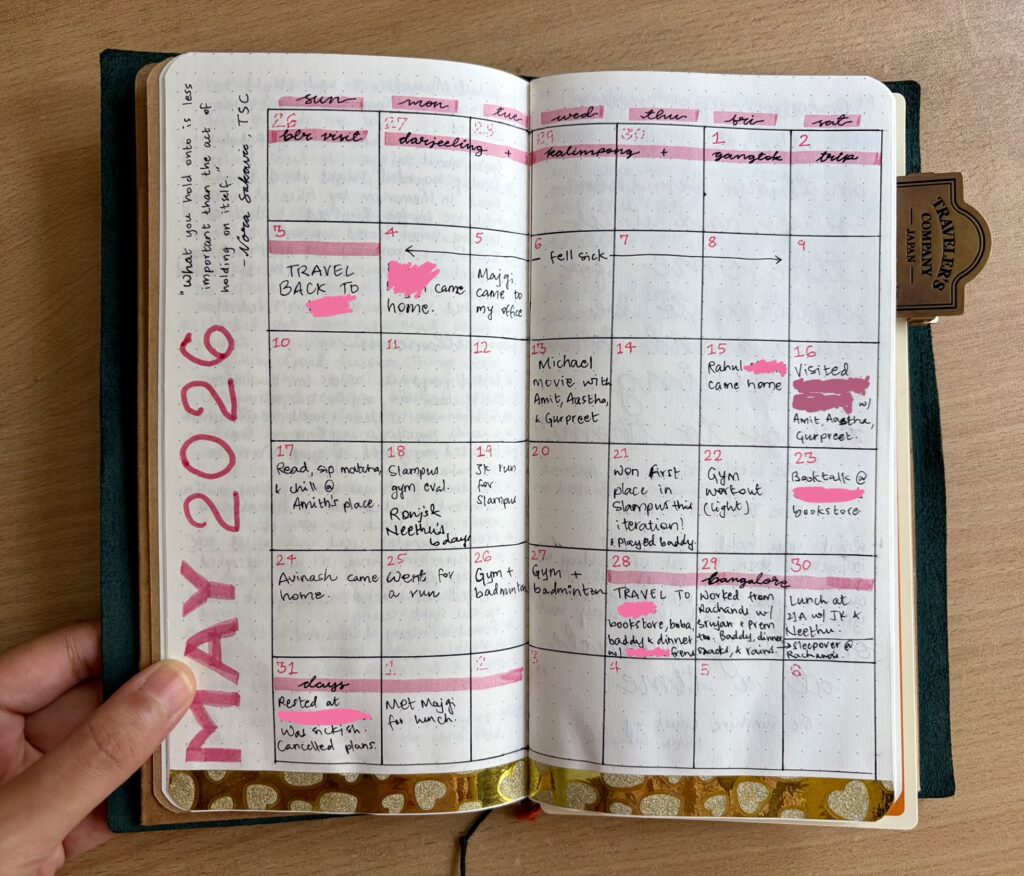 "What you hold onto is less
important than the act of
holding on itself."
- Nora Sakavic, TSC
MAY 2026
sun mon tue wed thu fri sat
26 27 28 29 30 1 2
blr visit darjeeling + kalimpong + gangtok trip
3
TRAVEL
BACK TO
4
came
home.
5
Majgi
came to
my office
6
fell sick
7
8
9
10
11
12
13
Michael
movie with
Amit, Aastha,
& Gurpreet
14
15
Rahul
came home
16
Visited
w/
Amit, Aastha,
Gurpreet.
17
Read, sip matcha,
& chill @
Amith's place.
18
Slampus
gym eval.
Neethu's
bdays
19
3k run
for
Slampus
20
21
Won first
place in
Slampus this
iteration!
& played baddy.
22
Gym
workout
(light)
23
Booktalk @
bookstore
24
Avinash came
home.
25
Went for
a run
26
Gym +
badminton
27
Gym +
badminton
28 29 30
bangalore
TRAVEL TO
bookstore, boba,
baddy & dinner
w/ frens
Worked from
Rachands w/
Srujan & Prem
too. Baddy, dinner,
snacks, & rains.
Lunch at
w/ JK &
Neethu.
→ sleepover @
Rachands.
31 1 2
days
Rested at
Was sickish.
Cancelled plans.
Met Majgi
for lunch.
3
4
5
6
TRAVELER'S
COMPANY
JAPAN